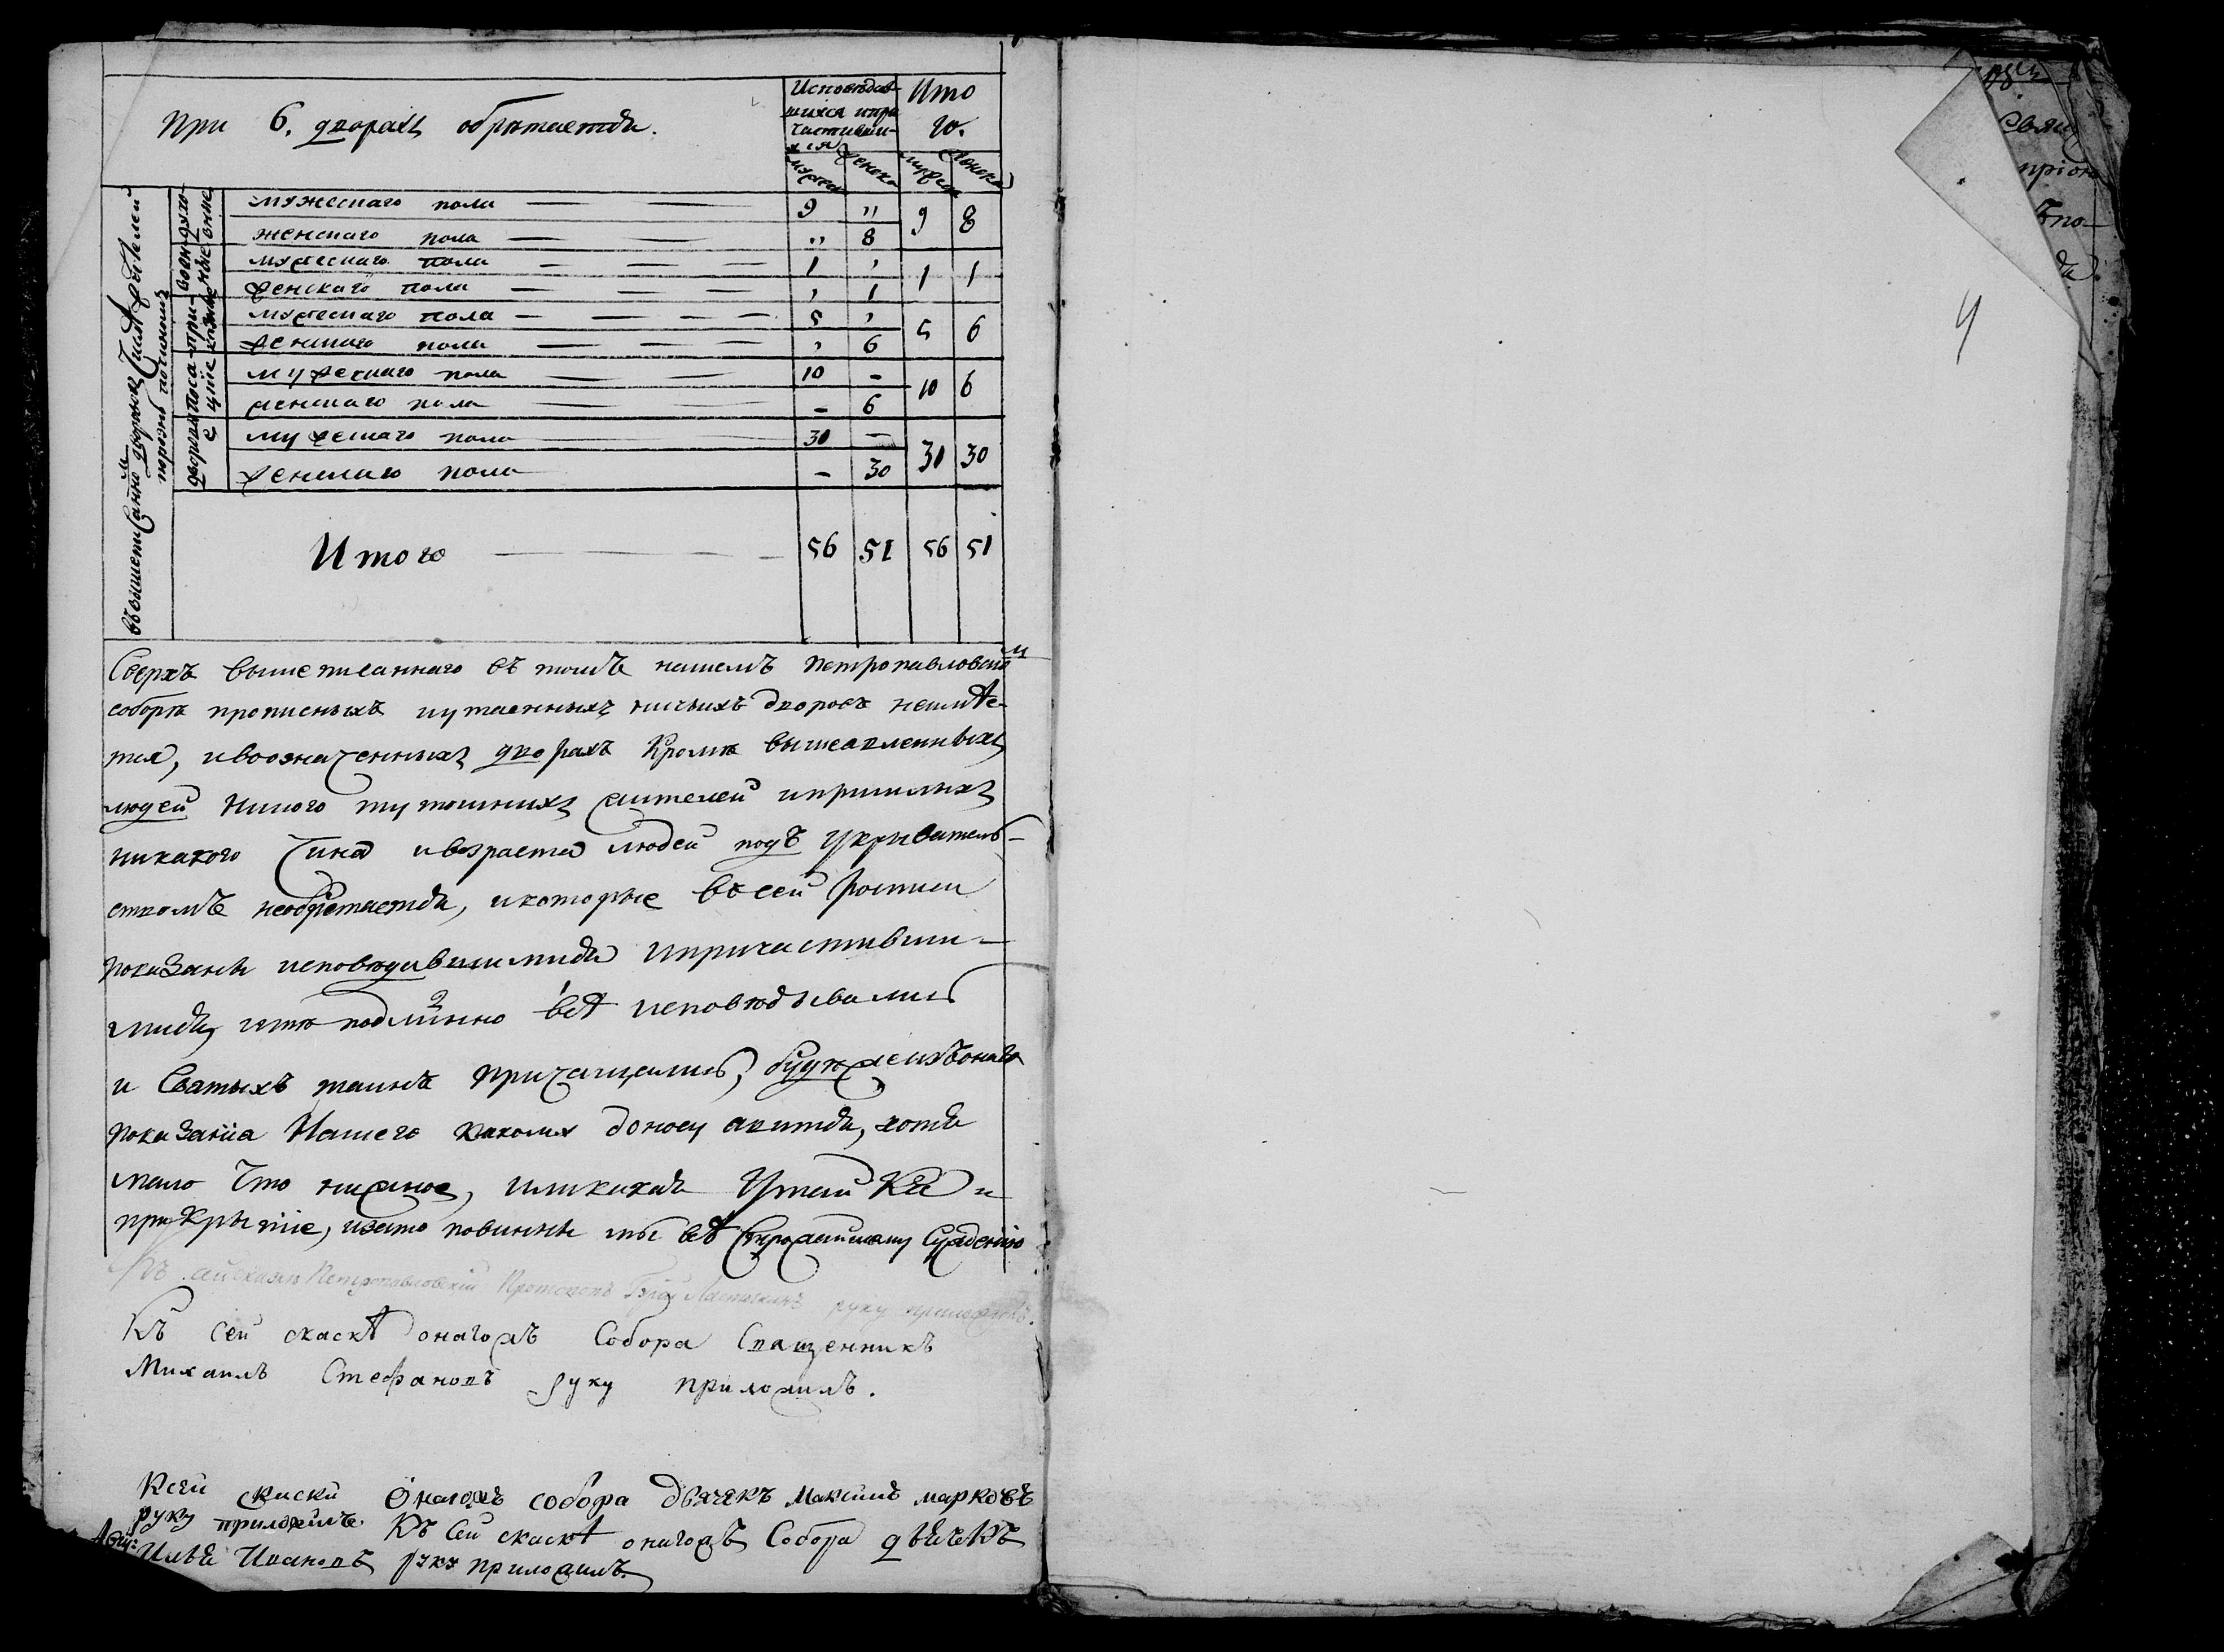 При 6. дворахъ обрѣтается.
Исповѣдав-
шихся и при
частивши-
хся
Ито
го.
мужеска
женска
мужеска
женска
духо-
вные
мужескаго пола 9 " 9 8
женскаго пола " 8
военные
мужескаго пола 1 , 1 1
женскаго пола , 1
приказные
мужескаго пола 5 , 5 6
женскаго пола , 6
посацкие
мужескаго пола 10 - 10 6
женскаго пола - 6
дворовые
мужескаго пола 31 - 31 30
женскаго пола - 30
Итого 56 51 56 51
Сверхъ вышеписаннаго въ томъ нашемъ Петропавловском
соборѣ прописныхъ и утаенныхъ ничьихъ дворовъ неимѣе-
тся, и въ означенныхъ дворахъ кромѣ вышеявленныхъ
людей никого тутошнихъ жителей и пришлыхъ
никакого чина и возраста людей подъ укрыватель-
ствомъ необрѣтается, и которые въ сей росписи
показаны исповѣдавшимися и причастивши-
мися, и тѣ подлинно всѣ исповѣдывались
и Святыхъ таинъ причащались, будеже изъ онаго
показания Нашего по какому доносу явится, хотя
мало что ниесть, или какая утайка и
прикрытие, и за то повинны мы всѣ строжайшему суждению
Къ сей сказкѣ Петропавловский Протопопъ руку приложилъ.
Къ сей скаскѣ онагожъ Собора Священникъ
Михаилъ Стефановъ руку приложилъ.
К сей скаски онагожъ собора дьячекъ Максимъ марковъ
руку приложилъ. Къ сей скаскѣ онагожъ Собора дьячекъ
Илья Ивановъ руку приложилъ.
4